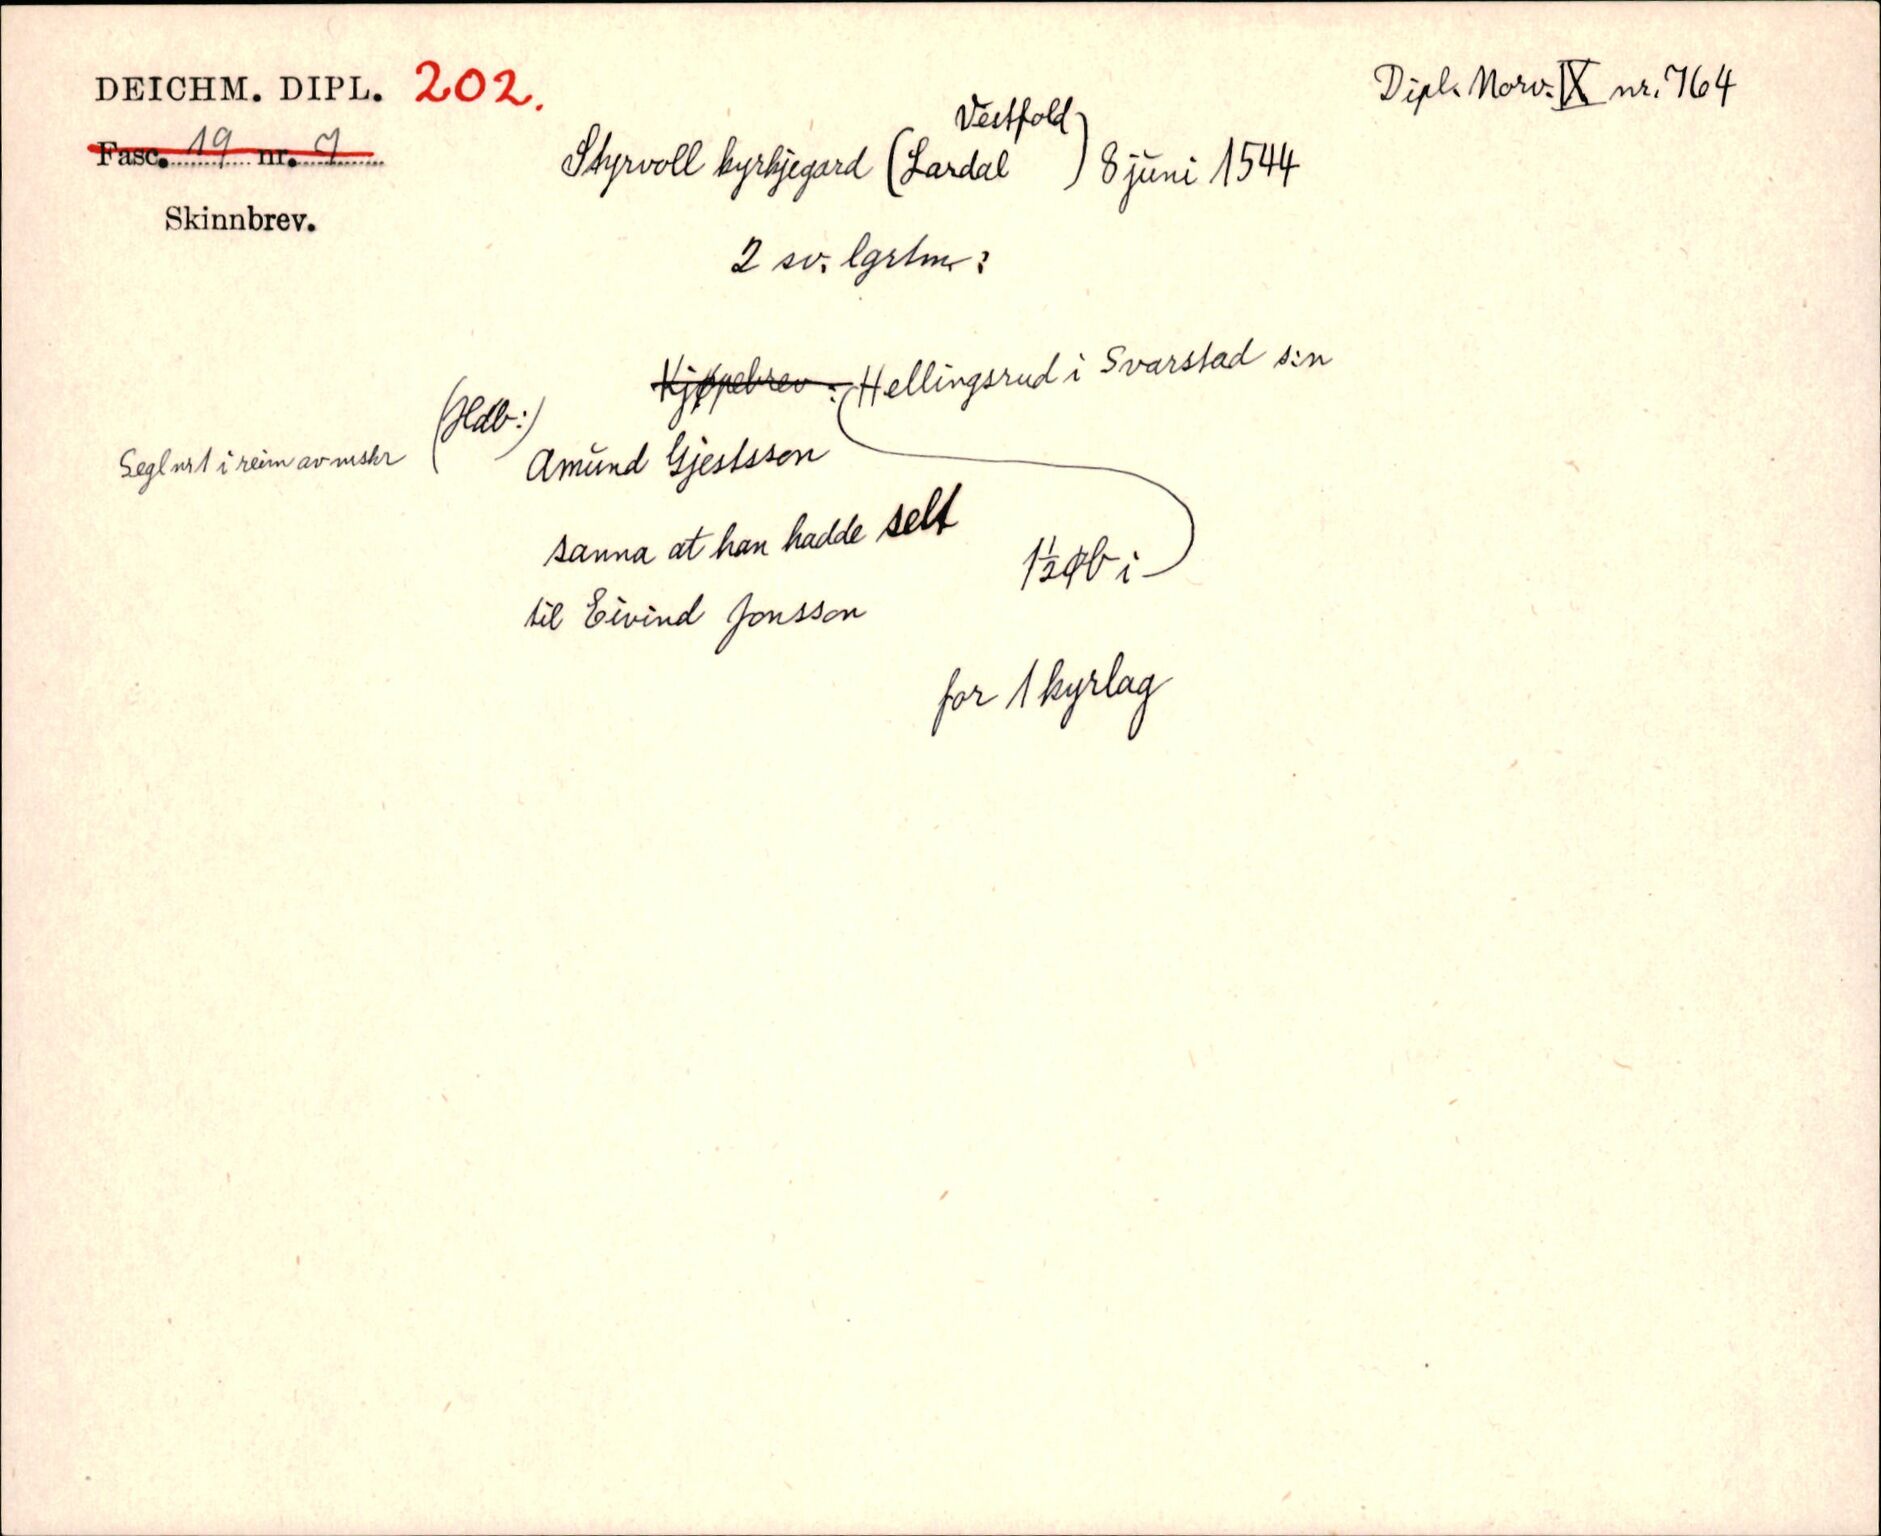 DEICHM. DIPL. 202.
Dipl. Norv. IX nr. 764
Fasc. 19 nr. 7
Vestfold
Styrvoll kyrkjegard (Lardal ) 8 juni 1544
Skinnbrev.
2 sv. lgrtm:
Kjøpebrev: Hellingsrud i Svarstad s:n
(Hdb:)
Segl nr 1 i reim av mskr
Amund Gjestsson
sanna at han hadde selt
1½ øb i
til Eivind Jonsson
for 1 kyrlag